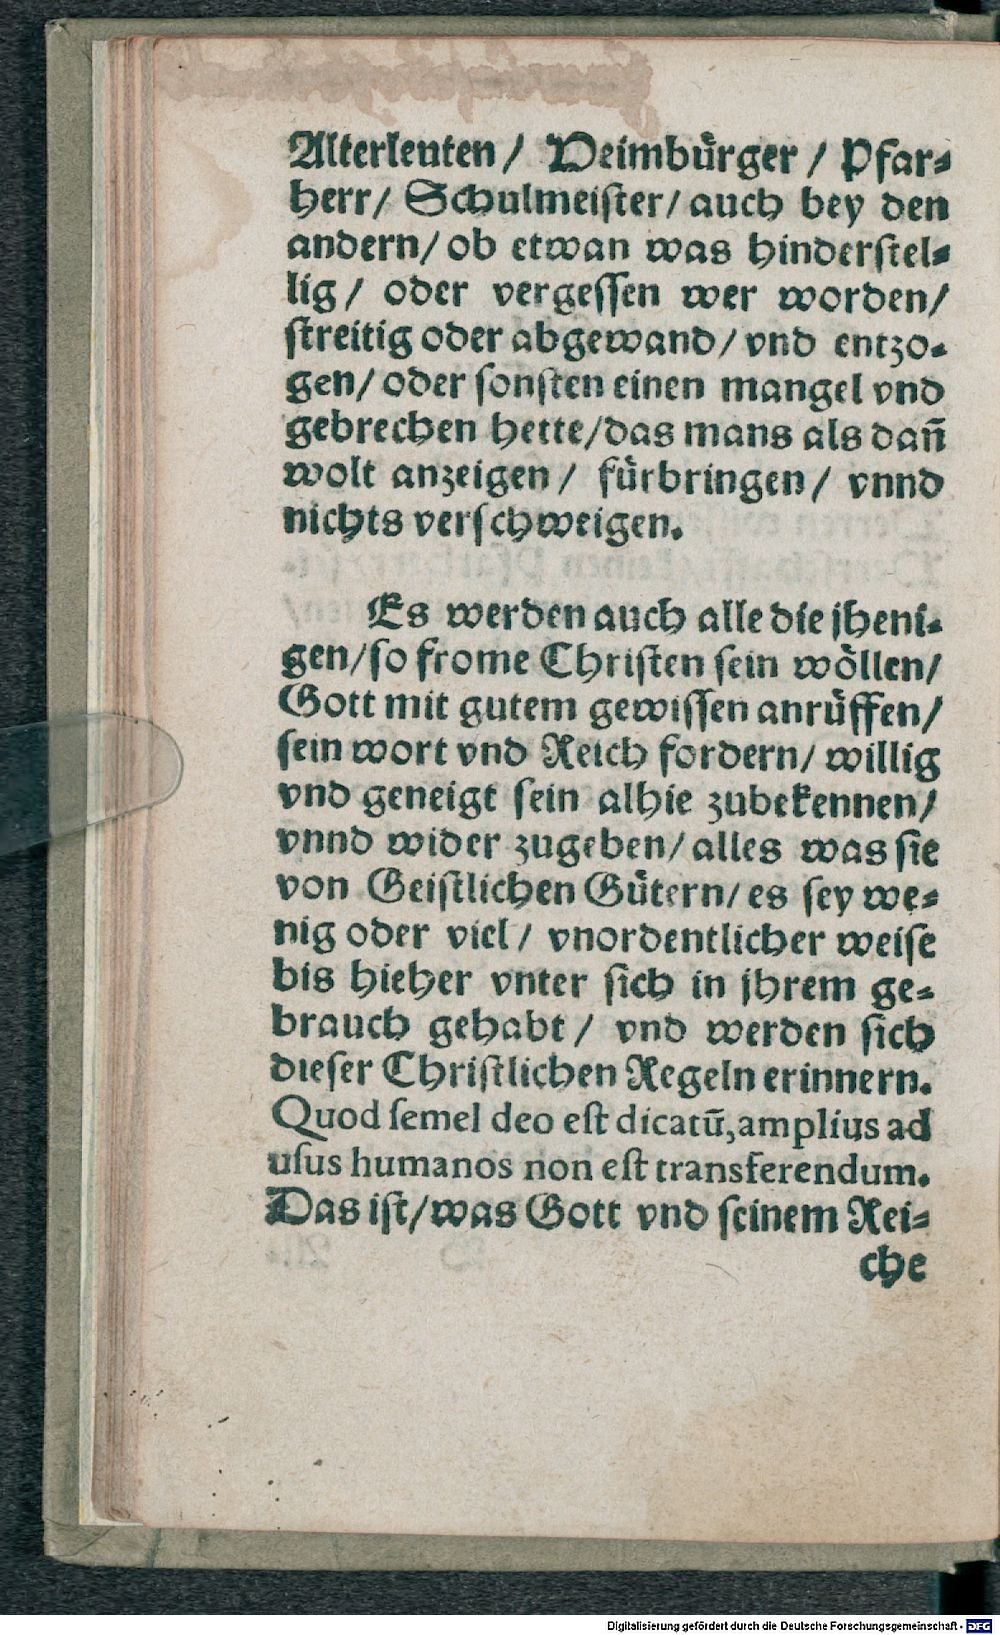 Alterleuten / Heimbürger / Pfar⸗
herr / Schulmeister / auch bey den
andern / ob etwan was hinderstel⸗
lig / oder vergessen wer worden /
streitig oder abgewand / vnd entzo⸗
gen / oder sonsten einen mangel vnd
gebrechen hette / das mans als dañ
wolt anzeigen / fürbringen / vnnd
nichts verschweigen.
Es werden auch alle die jheni⸗
gen / so frome Christen sein wöllen /
Gott mit gutem gewissen anrüffen /
sein wort vnd Reich fordern / willig
vnd geneigt sein alhie zubekennen /
vnnd wider zugeben / alles was sie
von Geistlichen Gütern / es sey we⸗
nig oder viel / vnordentlicher weise
bis hieher vnter sich in jhrem ge⸗
brauch gehabt / vnd werden sich
dieser Christlichen Regeln erinnern.
Quod semel deo est dicatū, amplius ad
usus humanos non est transferendum.
Das ist / was Gott vnd seinem Rei⸗
che
Digitalisierung gefördert durch die Deutsche Forschungsgemeinschaft - DFG